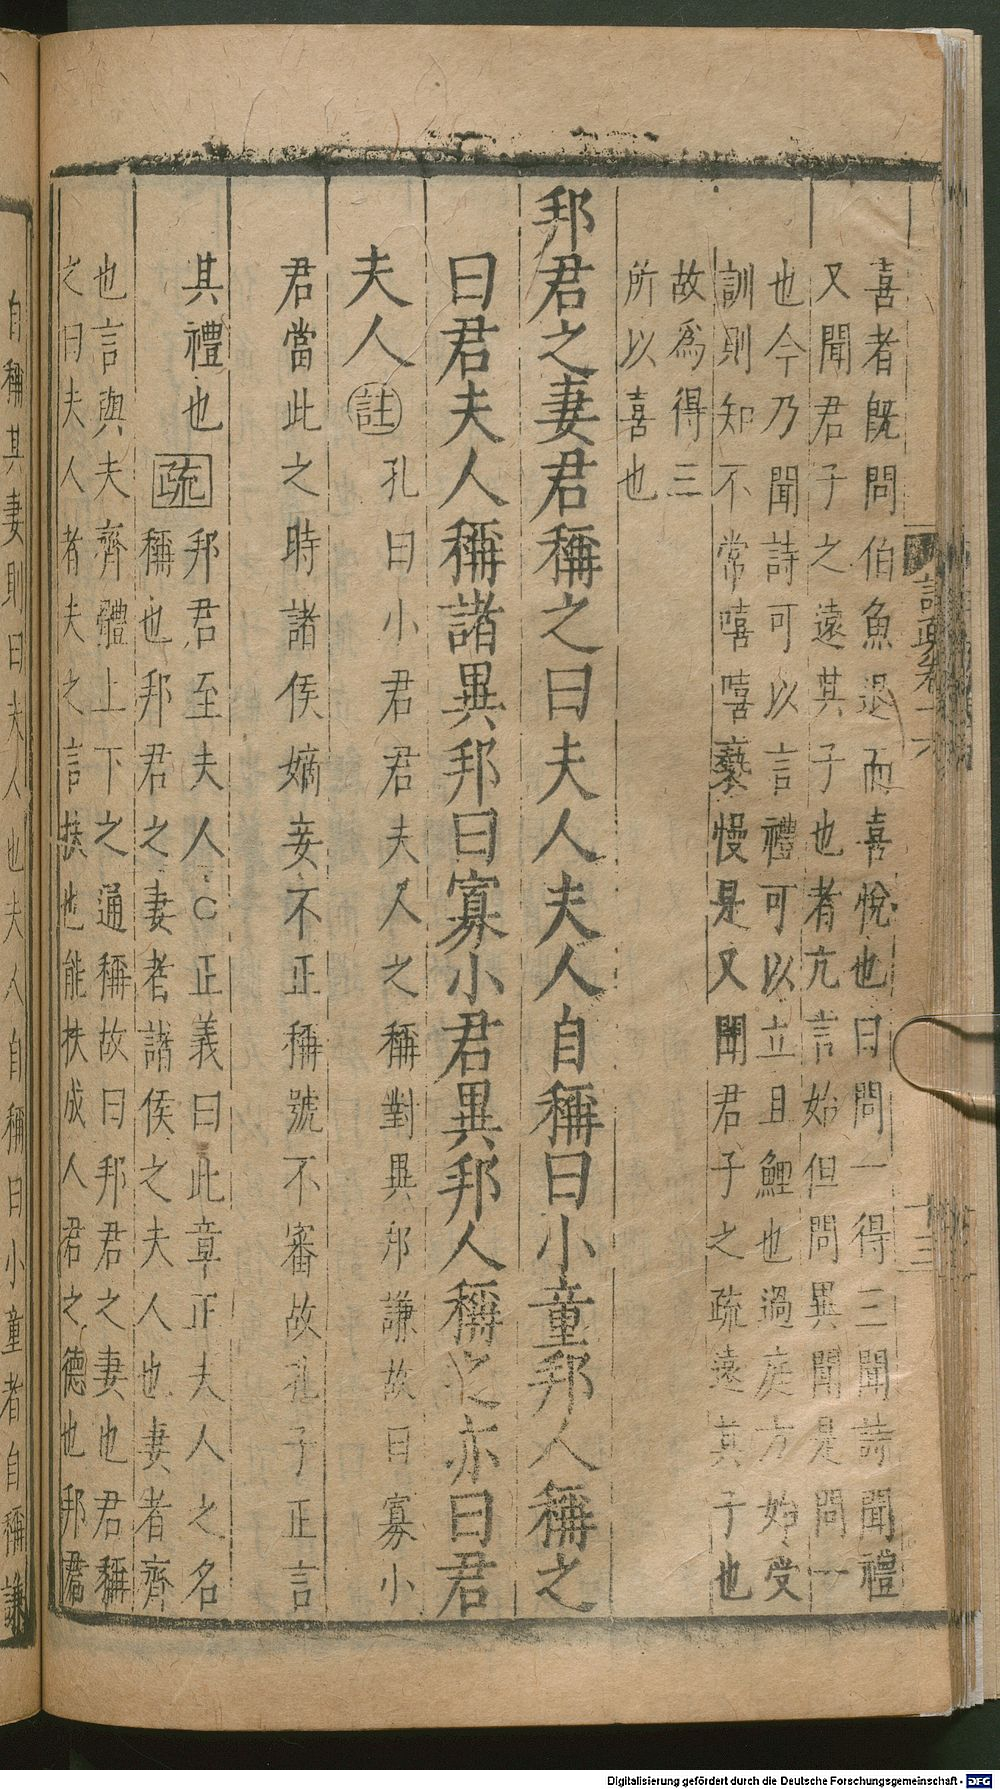 喜者旣問伯魚退而喜悅也曰問一得三聞詩聞禮
又聞君子之遠其子也者亢言始但問異聞是問一
也今乃聞詩可以言禮可以立且鯉也過庭方始受
訓則知不常嘻嘻褻慢是又聞君子之疏遠其子也
故爲得三
所以喜也
邦君之妻君稱之曰夫人夫人自稱曰小童邦人稱之
曰君夫人稱諸異邦曰寡小君異邦人稱之亦曰君
夫人註孔曰小君君夫人之稱對異邦謙故曰寡小
君當此之時諸侯嫡妾不正稱號不審故孔子正言
其禮也疏邦君至夫人○正義曰此章正夫人之名
稱也邦君之妻者諸侯之夫人也妻者齊
也言與夫齊體上下之通稱故曰邦君之妻也君稱
之曰夫人者夫之言扶也能扶成人君之德也邦君
自稱其妻則曰夫人也夫人自稱曰小童者自稱謙
十三
Digitalisierung gefördert durch die Deutsche Forschungsgemeinschaft - DFG